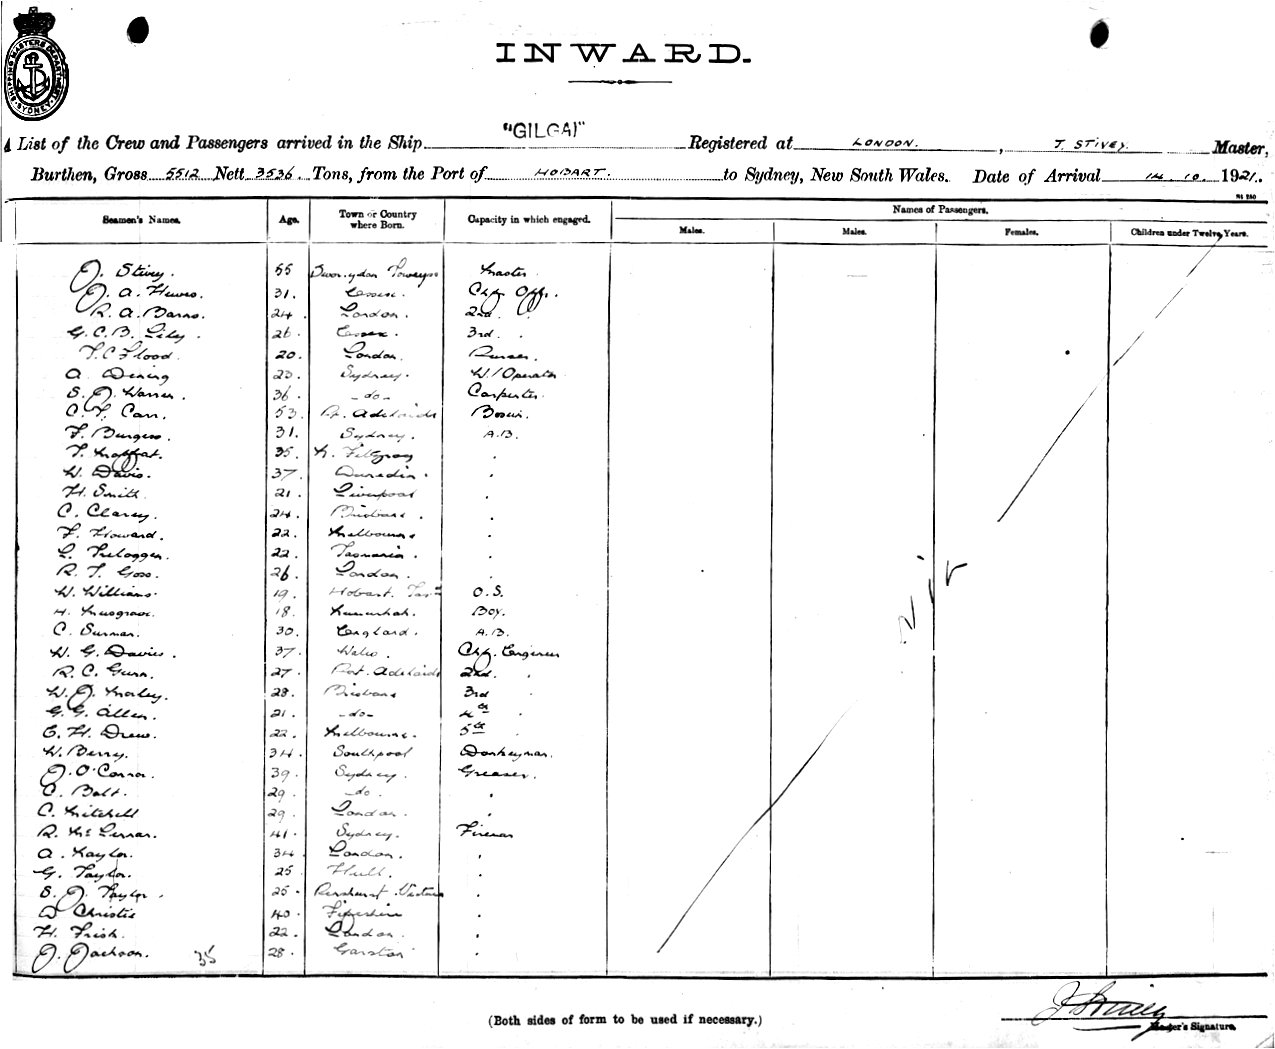 SHIPPING MASTERS DEPARTMENT SYDNEY
INWARD.
A List of the Crew and Passengers arrived in the Ship "GILGAI" Registered at LONDON. , J. STIVEY. Master,
Burthen, Gross 5512 Nett 3536 Tons, from the Port of HOBART. to Sydney, New South Wales. Date of Arrival 14. 10. 1921.
Seamen's Names. Age. Town or Country where Born. Capacity in which engaged. Names of Passengers.
Males. Males. Females. Children under Twelve Years.
J. Stivey. 55 Master
J. A. Hewes. 31. Essex. Chf. Off.
R. A. Barns. 24 London. 2nd.
G. C. B. Liley. 26 Essex. 3rd.
T. C. Flood. 20. London. Purser.
A. Dening 23. Sydney. W/Operator
S. J. Warren. 36 -do- Carpenter
C. F. Carr. 53. Pt. Adelaide Bosun.
F. Burgess. 31. Sydney. A.B.
T. Moffat. 35. N. Fitzroy
W. Davis. 37 Dunedin.
H. Smith. 21 Liverpool
C. Clarey. 24 Brisbane.
F. Howard. 22. Melbourne
L. Treloggen. 22. Tasmania.
R. T. Goss. 26 London.
W. Williams. 19. Hobart. Tas. O.S.
H. Musgrave. 18. Boy.
C. Surman. 30 England. A.B.
W. G. Davies. 37 Wales. Chf. Engineer
R. C. Gunn. 27 Port. Adelaide 2nd.
W. J. Morley. 28. Brisbane 3rd
G. G. Allen. 21. -do- 4th
E. H. Drew. 22 Melbourne. 5th
W. Berry. 34 Southpool Donkeyman.
J. O'Connor. 39. Sydney. Greaser.
C. Bolt. 29. -do.
C. Mitchell 29. London.
R. McLennan. 41. Sydney. Fireman
A. Naylor. 34 London.
G. Taylor. 25 Hull.
S. J. Taylor. 25. Penshurst. Victoria
D Christie 40. Fifeshire
H. Frish. 22. London.
J. Jackson. 35 28. Garston
Nil
(Both sides of form to be used if necessary.)
J Stivey
Master's Signature.